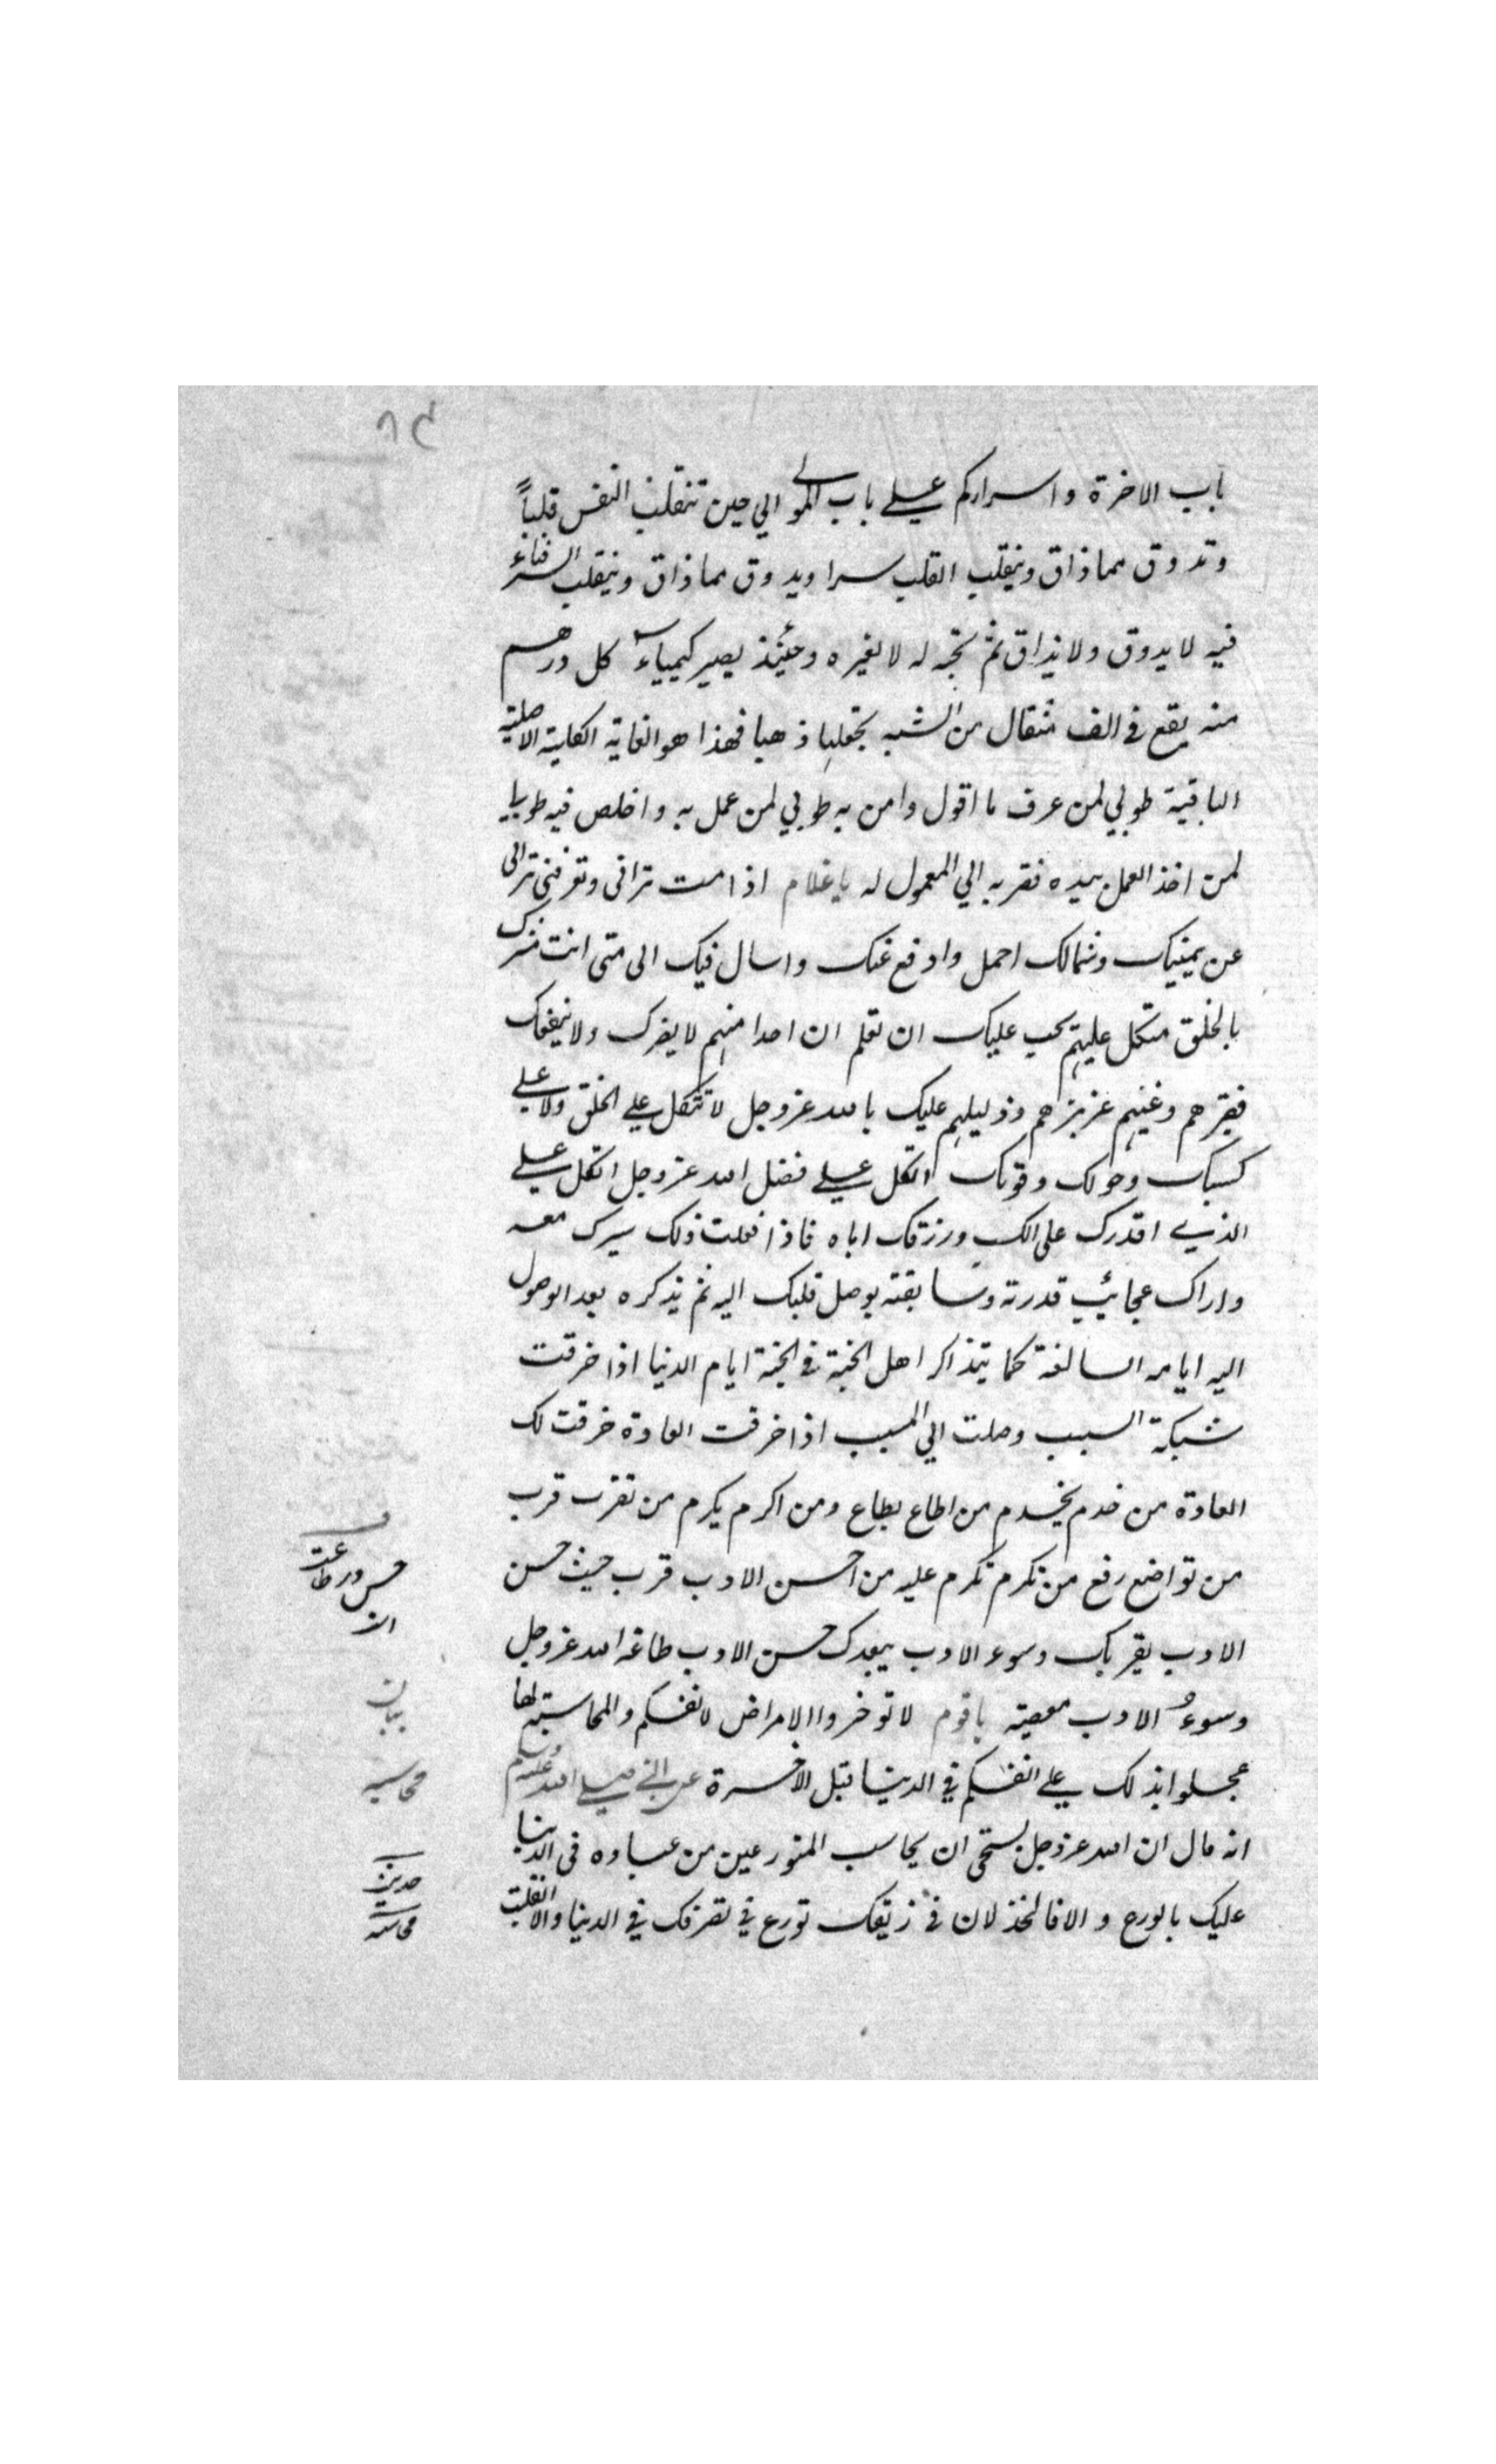 باب الاخرة واسراركم علي باب المولي الي حين تنقلب النفس قلباً
وتدوق مما ذاق وينقلب القلب سرا ويدوق مما ذاق وينقلب السر فناء
فيه لا يدوق ولا يذاق ثم تحيه له لا لغيره وحينئذ يصير كيمياء كل درهم
منه يقع في الف مثقال من الشبه تجعلها ذهبا فهذا هو الغاية الكلية الاصلية
الباقية طوبي لمن عرف ما اقول وامن به طوبي لمن عمل به واخلص فيه طوبا
لمن اخذ العمل بيده فقربه الي المعمول له يا غلام اذا مت تراني وتعرفني تراني
عن يمينك وشمالك احمل وادفع عنك واسال فيك الي متي انت مشرك
بالخلق متكل عليهم يجب عليك ان تعلم ان احدا منهم لا يضرك ولا ينفعك
فقيرهم وغنيهم عزيزهم وذليلهم عليك بالله عز وجل لا تتكل علي الخلق ولا علي
كسبك وحولك وقوتك اتكل علي فضل الله عز وجل اتكل علي
الذي اقدرك علي الكسب ورزقك اياه فاذا فعلت ذلك سيرك معه
واراك عجائب قدرته وسابقته يوصل قلبك اليه ثم يذكره بعد الوصول
اليه ايامه السالفة كما يتذاكر اهل الجنة في الجنة ايام الدنيا اذا خرقت
شبكة السبب وصلت الي المسبب اذا خرقت العادة خرقت لك
العادة من خدم يخدم من اطاع يطاع ومن اكرم يكرم من تقرب قرب
من تواضع رفع من تكرم تكرم عليه من احسن الادب قرب حيث حسن
الادب يقربك وسوء الادب يبعدك حسن الادب طاعة الله عز وجل
وسوء الادب معصيته يا قوم لا توخروا الامراض لانفسكم والمحاسبة لها
عجلوا بذلك علي انفسكم في الدنيا قبل الاخرة عن النبي صلي الله عليه وسلم
انه قال ان الله عز وجل يستحي ان يحاسب المتورعين من عباده في الدنيا
عليك بالورع والا فالخذلان في زيقك تورع في تصرفك في الدنيا والا انقلبت
حسن در طاعت
بيان
محاسبه
حديث
محاسبه